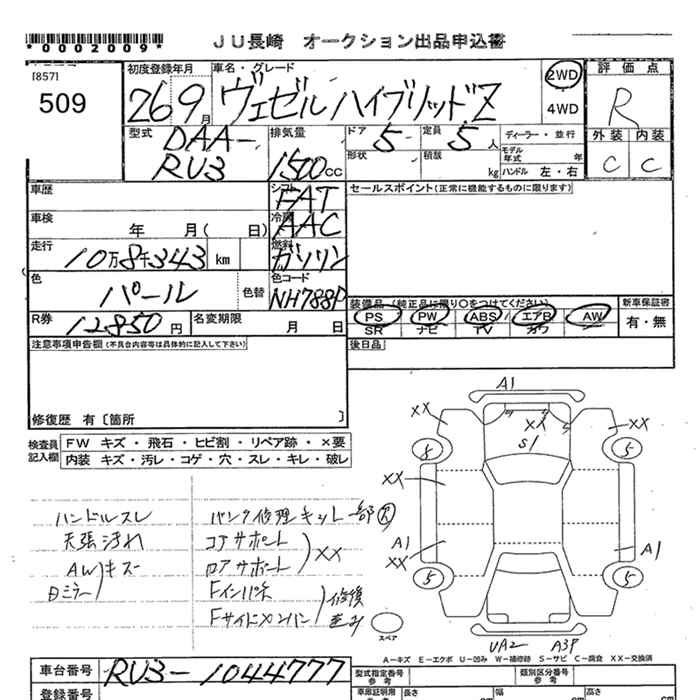 *0002009*
JU長崎 オークション出品申込書
[857]
509
初度登録年月
26 9月
車名・グレード
ヴェゼル ハイブリッドZ
2WD
4WD
評価点
R
外装 内装
C C
型式
DAA-
RU3
排気量
1500cc
ドア 5
定員 5人
形状
積載 kg
ディーラー・並行
モデル年式 年
ハンドル 左・右
車歴
シフト
FAT
セールスポイント(正常に機能するものに限ります)
車検 年 月( 日)
冷房
AAC
走行
10万8千343 km
燃料
ガソリン
色
パール
色替
色コード
NH788P
R券
12850円
名変期限 月 日
装備品(純正品に限り○をつけてください)
PS PW ABS エアB AW
SR ナビ TV カワ
新車保証書
有・無
注意事項申告欄(不具合内容等は具体的に記入して下さい)
後日品
修復歴 有〔箇所 〕
検査員記入欄
FW キズ・飛石・ヒビ割・リペア跡・×要
内装 キズ・汚レ・コゲ・穴・スレ・キレ・破レ
ハンドルスレ
天張汚れ
AW
Bミラー
キズ
パンク修理キット一部欠
コアサポート
ロアサポート
XX
Fインパネ
Fサイドメンバー
修復
歪み
A1
XX
XX
XX
S1
8
8
XX
A1
XX
A1
5
5
スペア
UA2 A3P
A-キズ E-エクボ U-凹み W-補修跡 S-サビ C-腐食 XX-交換
車台番号
RU3-1044777
型式指定番号
参考
類別区分番号
参考
登録番号
車庫証明用
長さ
幅
高さ